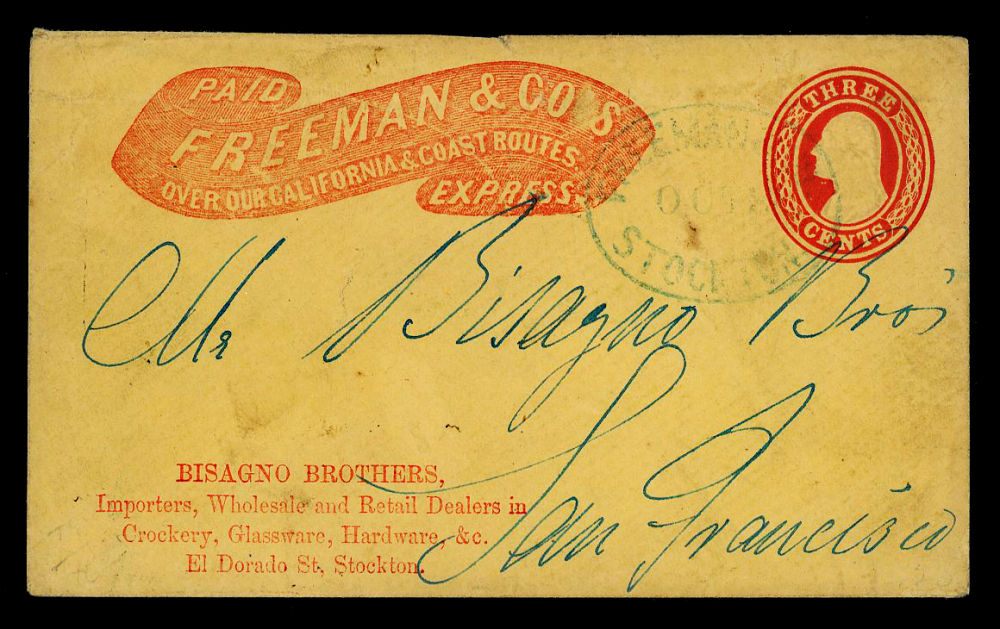 PAID
FREEMAN & CO'S
OVER OUR CALIFORNIA & COAST ROUTES
EXPRESS
THREE
CENTS
STOCKTON
Mr Bisagno Bros
San Francisco
BISAGNO BROTHERS,
Importers, Wholesale and Retail Dealers in
Crockery, Glassware, Hardware, &c.
El Dorado St, Stockton.